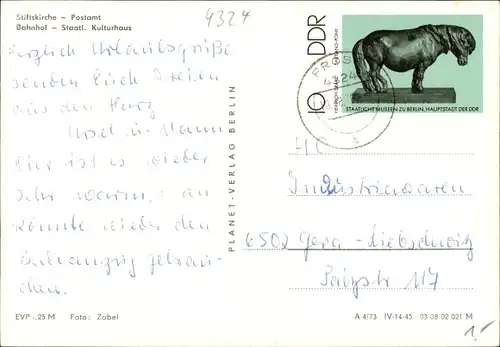 Stiftskirche – Postamt
Bahnhof – Staatl. Kulturhaus
4324
Herzlich Urlaubsgrüße
senden Euch Dreien
aus dem Harz
Ursel u. Mann
Hier ist es wieder
sehr warm, an
könnte wieder den
Badeanzug gebrau-
chen.
EVP -,25 M Foto: Zabel
PLANET-VERLAG BERLIN
DDR
10
STAATLICHE MUSEEN ZU BERLIN, HAUPTSTADT DER DDR
FROSE
4324
HO
Industriewaren
6502 Gera - Liebschwitz
Salzstr 117
A 4/73 IV-14-45 03 08 02 021 M
1,-